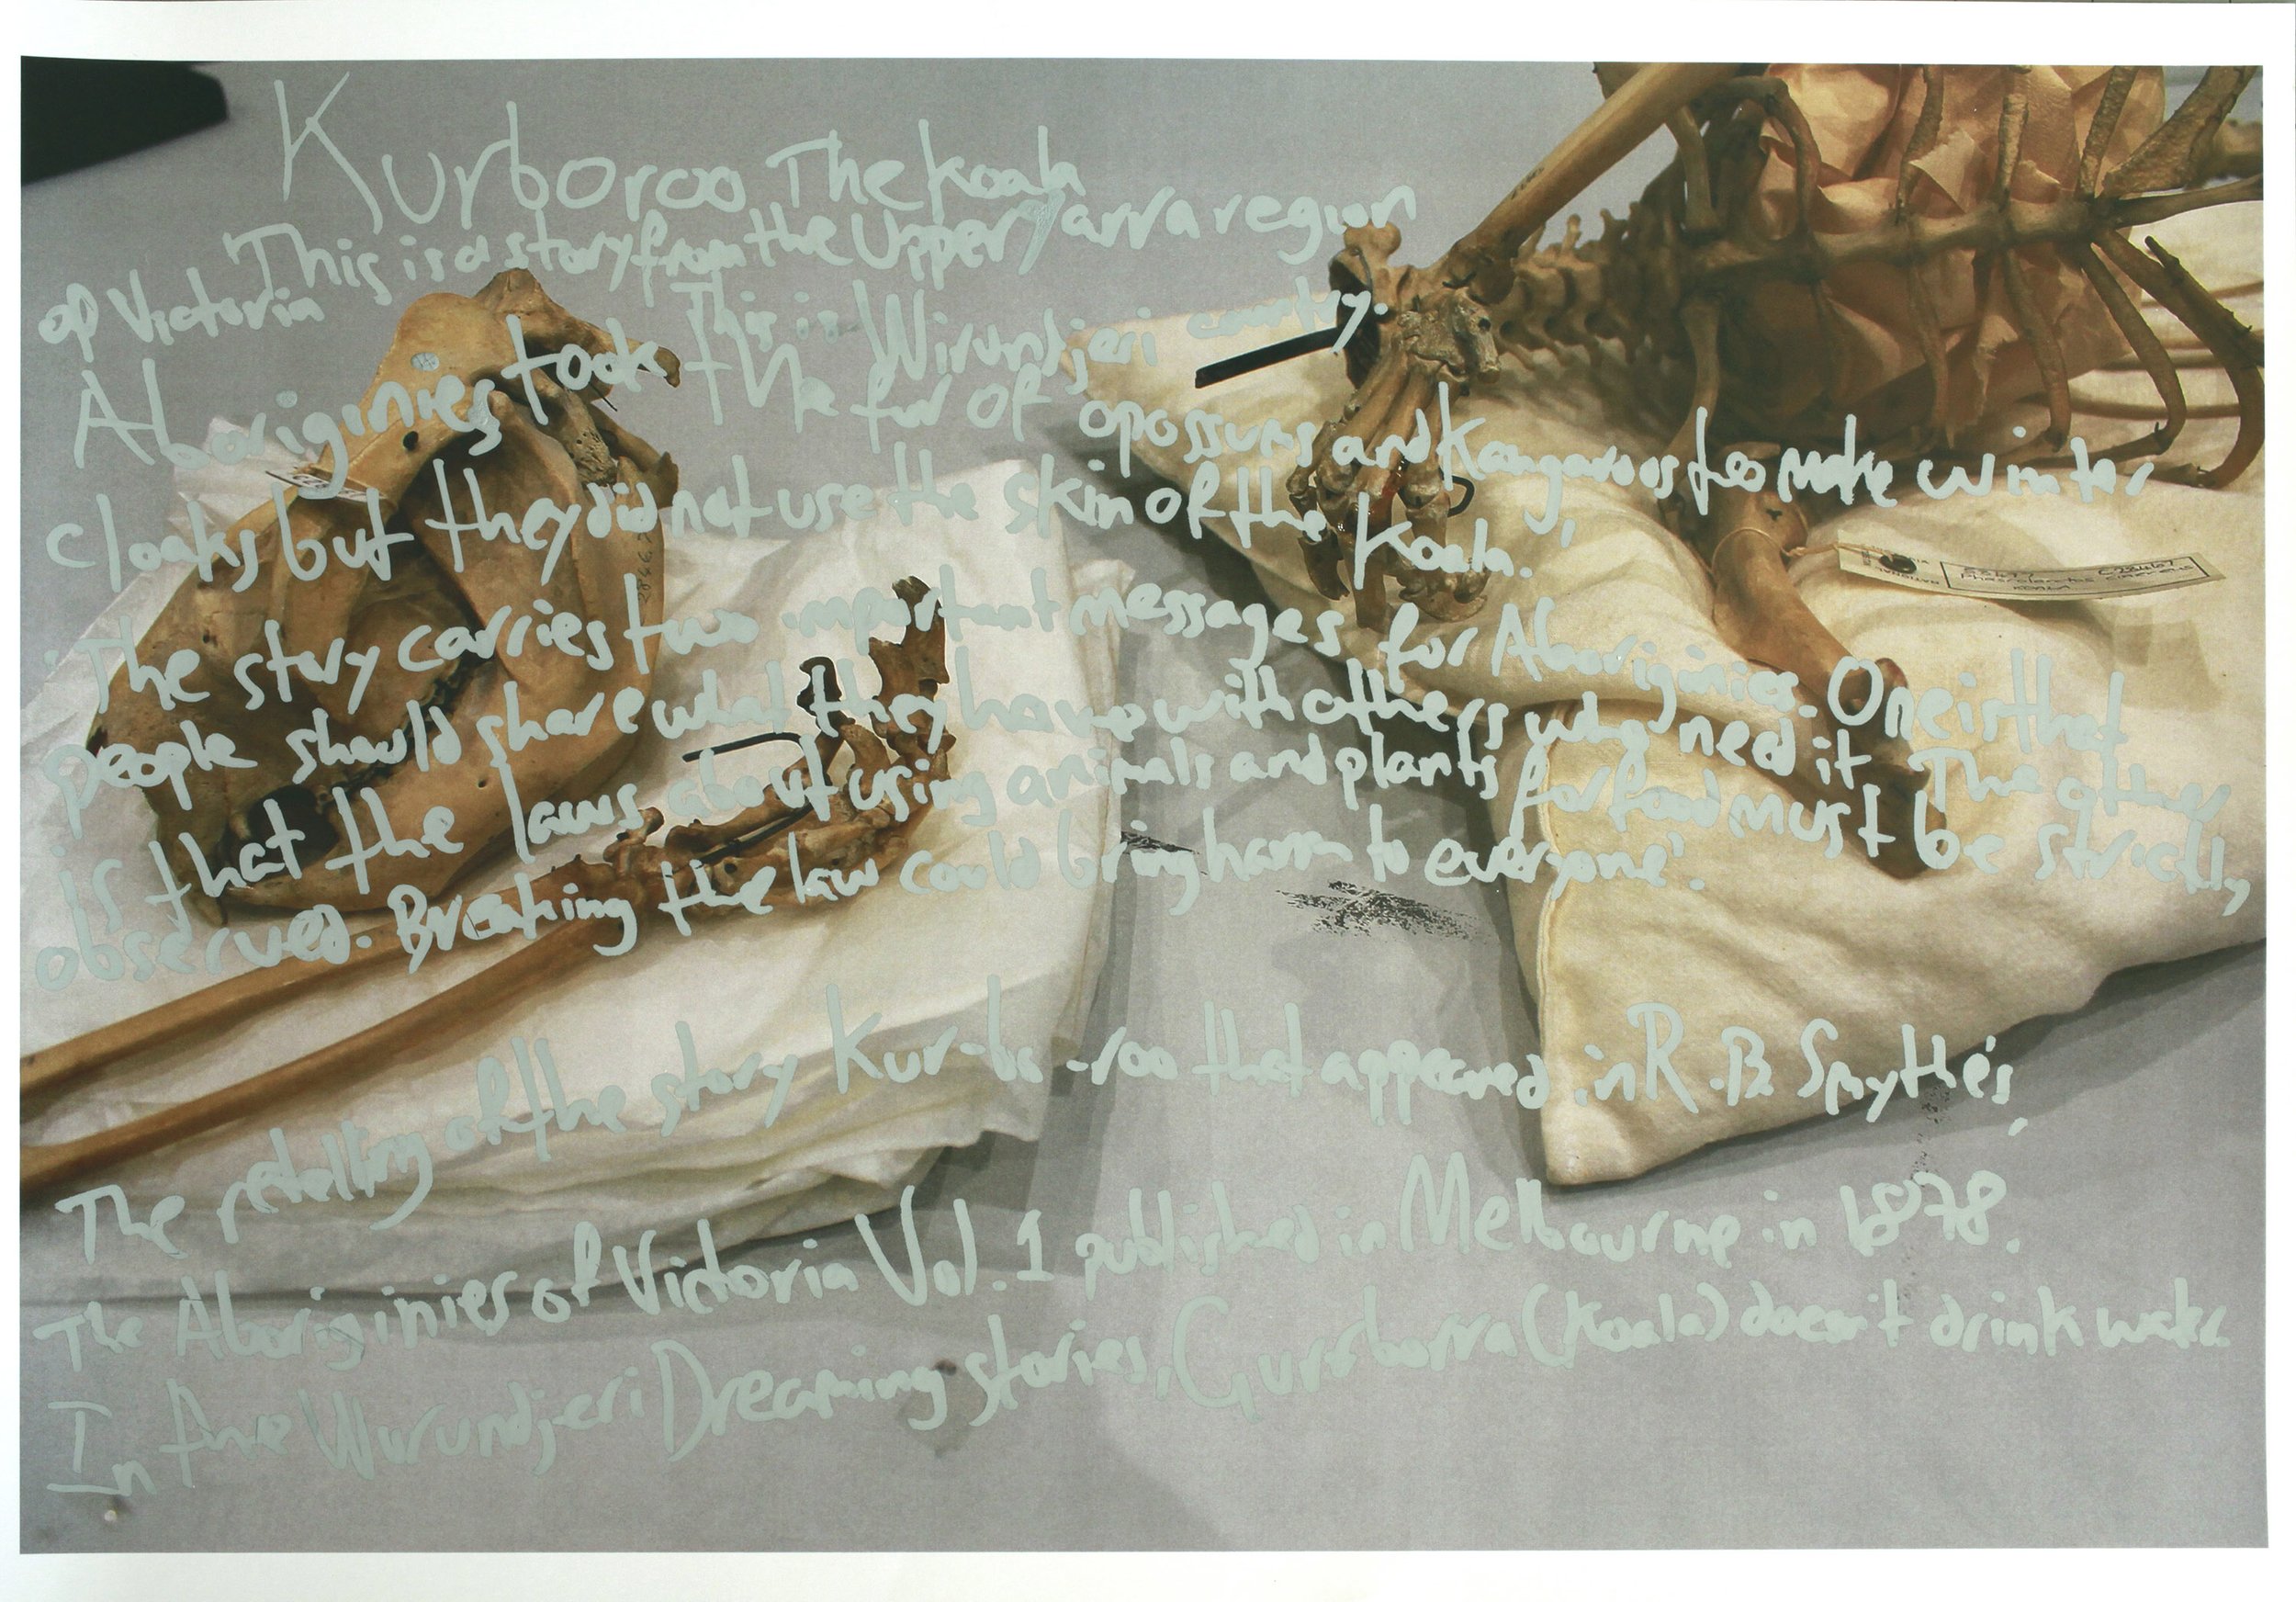 Kurboroo The Koala
This is a story from the Upper Yarra region
of Victoria
This is Wirundjeri country.
Aboriginies took the fur of opossums and Kangaroos too make winter
cloaks but they did not use the skin of the Koala.'
'The story carries two important messages for Aboriginies. One is that
people should share what they have with others who need it. The other
is that the laws about using animals and plants for food must be strictly
observed. Breaking the law could bring harm to everyone'.
The retelling of the story Kur-bo-roo that appeared in R.B. Smythe's,
The Aboriginies of Victoria Vol.1 published in Melbourne in 1878.
In the Wurundjeri Dreaming stories, Gurrborra (Koala) doesn't drink water
KOALA